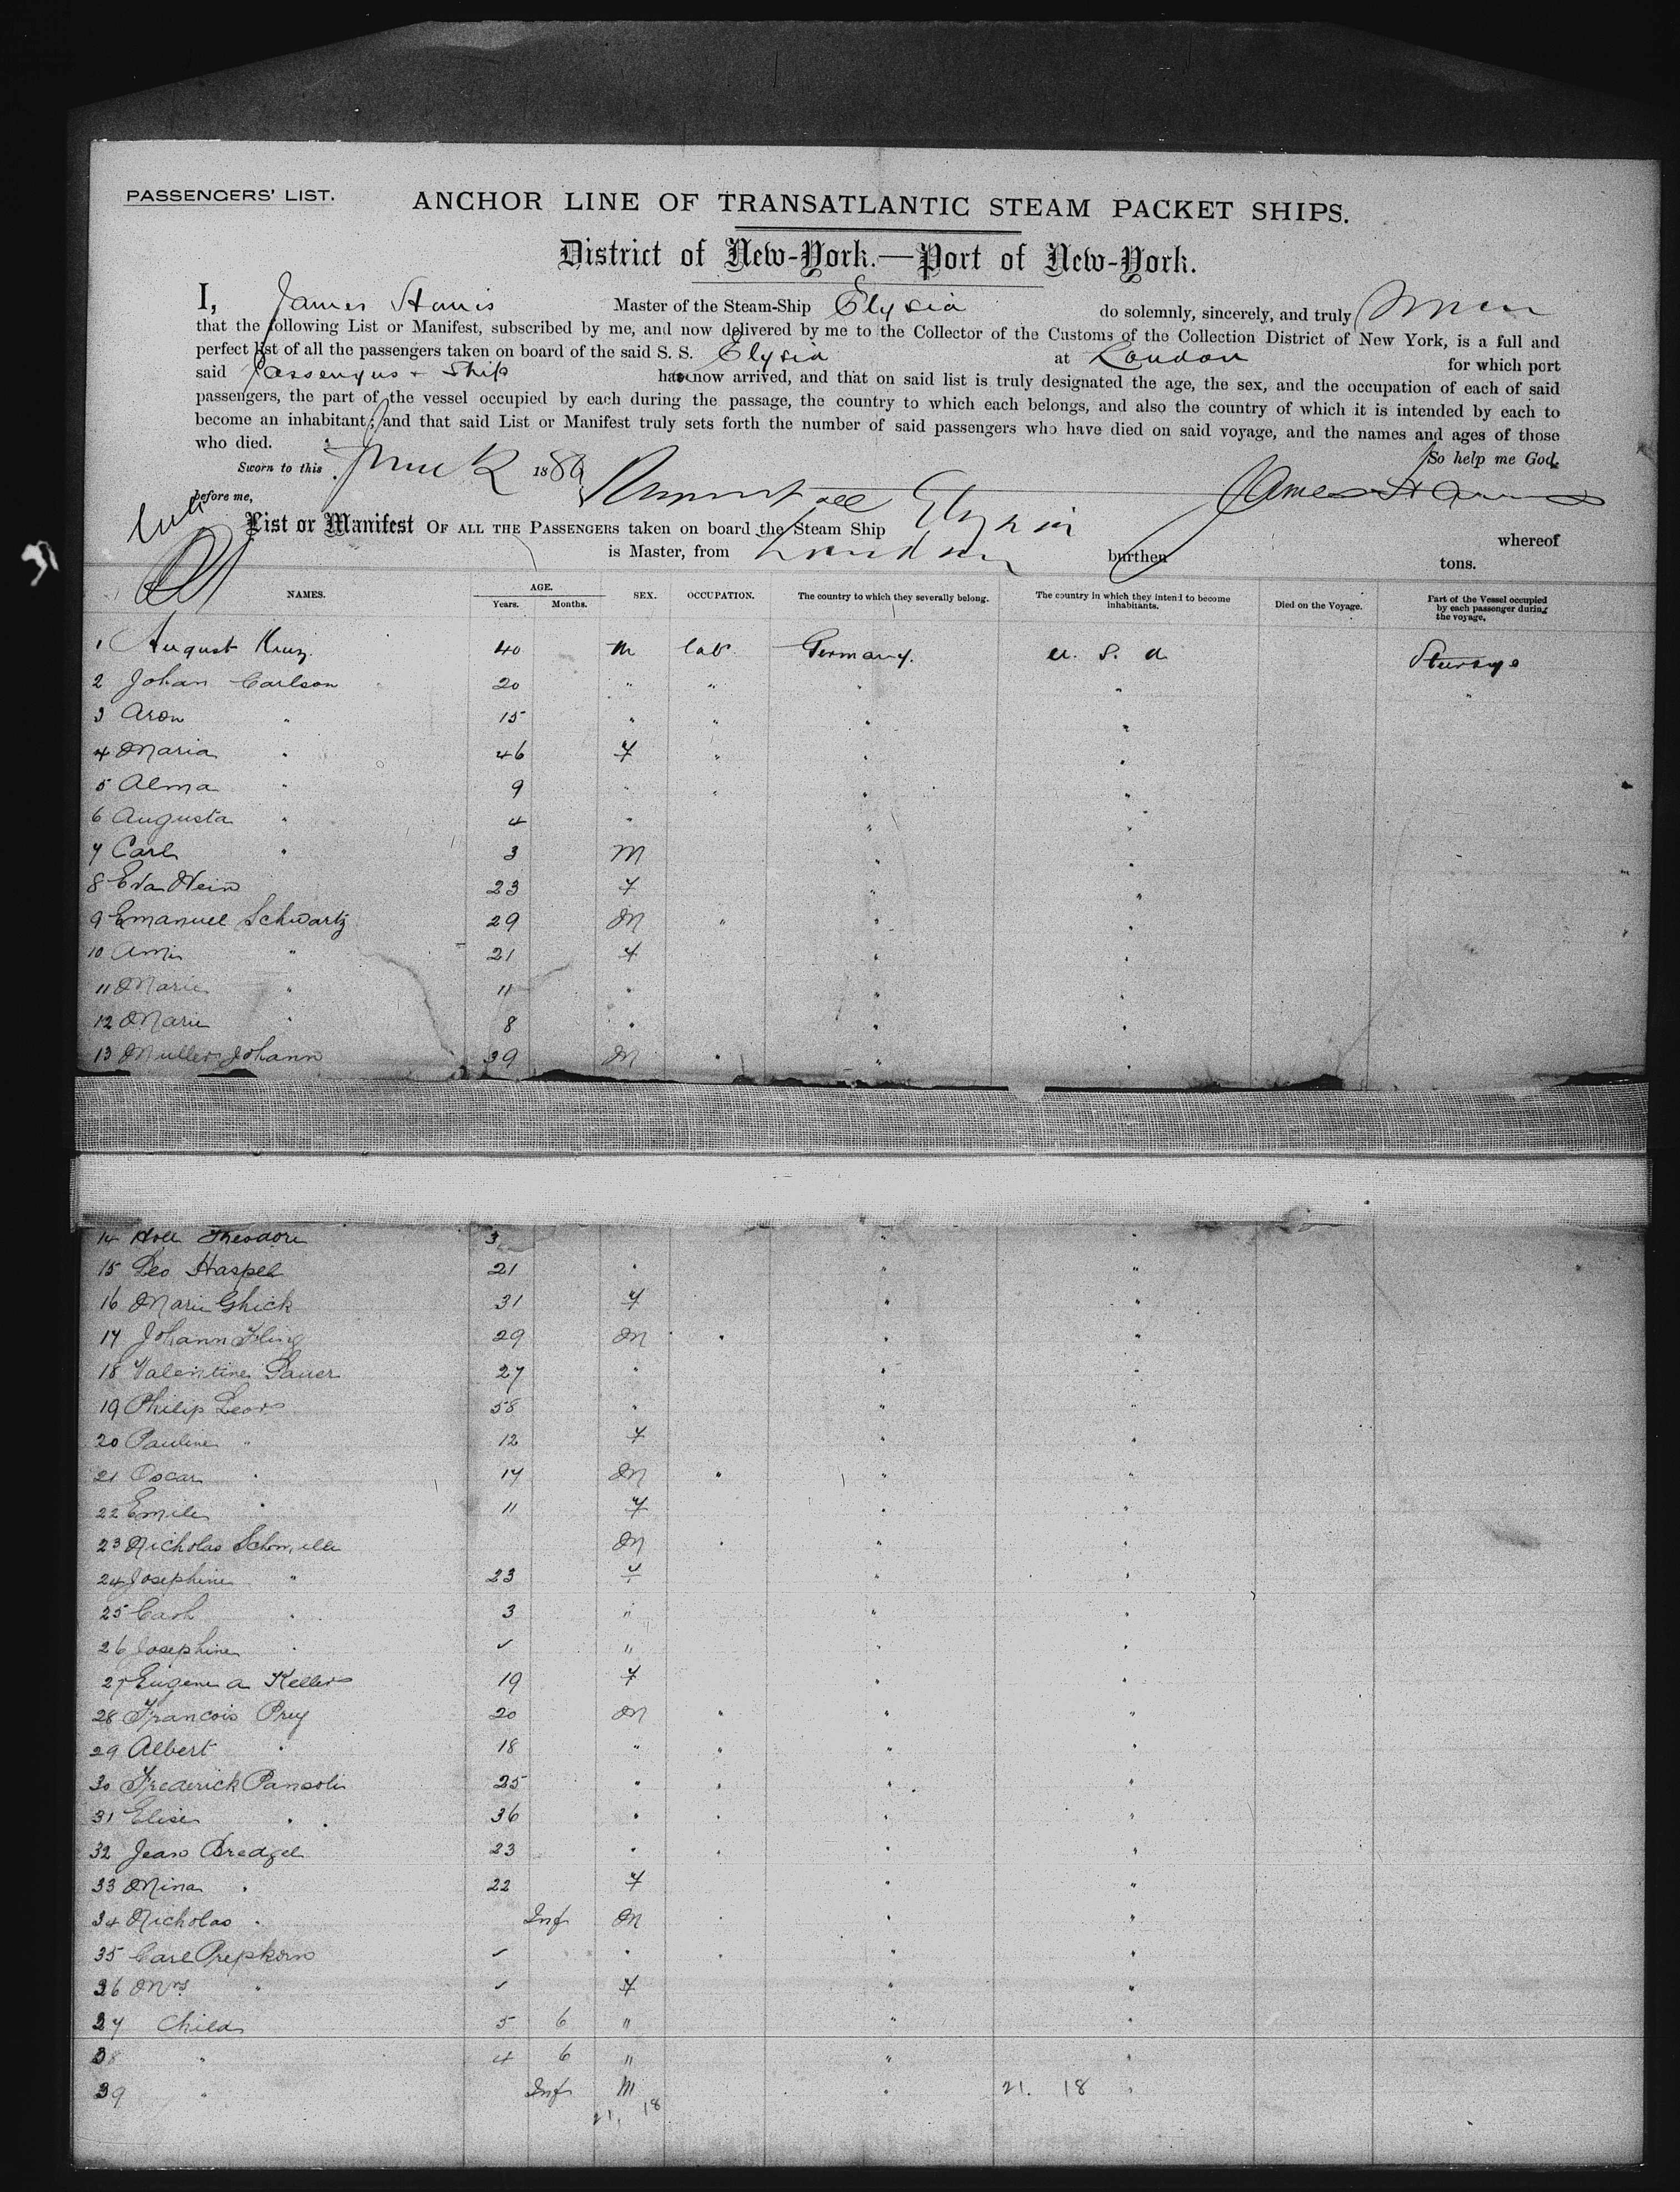 PASSENGERS' LIST.
ANCHOR LINE OF TRANSATLANTIC STEAM PACKET SHIPS.
District of New-York.—Port of New-York.
I, James Master of the Steam-Ship Elysia do solemnly, sincerely, and truly
that the following List or Manifest, subscribed by me, and now delivered by me to the Collector of the Customs of the Collection District of New York, is a full and
perfect list of all the passengers taken on board of the said S. S. Elysia at London for which port
said Passengers + Ship has now arrived, and that on said list is truly designated the age, the sex, and the occupation of each of said
passengers, the part of the vessel occupied by each during the passage, the country to which each belongs, and also the country of which it is intended by each to
become an inhabitant; and that said List or Manifest truly sets forth the number of said passengers who have died on said voyage, and the names and ages of those
who died. So help me God.
Sworn to this June 12 1889
before me,
List or Manifest OF ALL THE PASSENGERS taken on board the Steam Ship Elysia whereof
is Master, from London burthen tons.
NAMES. AGE. Years. Months. SEX. OCCUPATION. The country to which they severally belong. The country in which they intend to become inhabitants. Died on the Voyage. Part of the Vessel occupied by each passenger during the voyage.
1 August 40 M lab Germany. U. S. A Steerage
2 Johan Carlson 20 " " " " "
3 Aron " 15 " " " "
4 Maria " 46 F " " "
5 Alma " 9 " " " "
6 Augusta " 4 " " "
7 Carl " 3 M " "
8 Eva Hein 23 F " "
9 Emanuel Schwartz 29 M " " "
10 " 21 F " "
11 Marie " 11 " " "
12 Marie " 8 " " "
13 Muller Johann 39 M " " "
14 Theodore 3 " "
15 Leo Haspel 21 " " "
16 Marie Ghick 31 F " "
17 Johann 29 M " " "
18 Valentine 27 " " "
19 Philip 58 " " "
20 Pauline " 12 F " "
21 Oscar " 14 M " " "
22 Emile " 11 F " "
23 Nicholas M " " "
24 Josephine " 23 F " "
25 " 3 " " "
26 Josephine " ✓ " " "
27 Eugene a Keller 19 F " "
28 Francois Prey 20 M " " "
29 Albert " 18 " " " "
30 Frederick Pansoli 25 " " " "
31 Elise " 36 " " " "
32 Jean Bredgel 23 " " " "
33 Mina " 22 F " "
34 Nicholas " Inf M " " "
35 Carl Prepkorn ✓ " " " "
36 Mrs " ✓ F " "
37 Child 5 6 " " "
38 " 4 6 " " "
39 " Inf M " 21. 18 "
21. 18